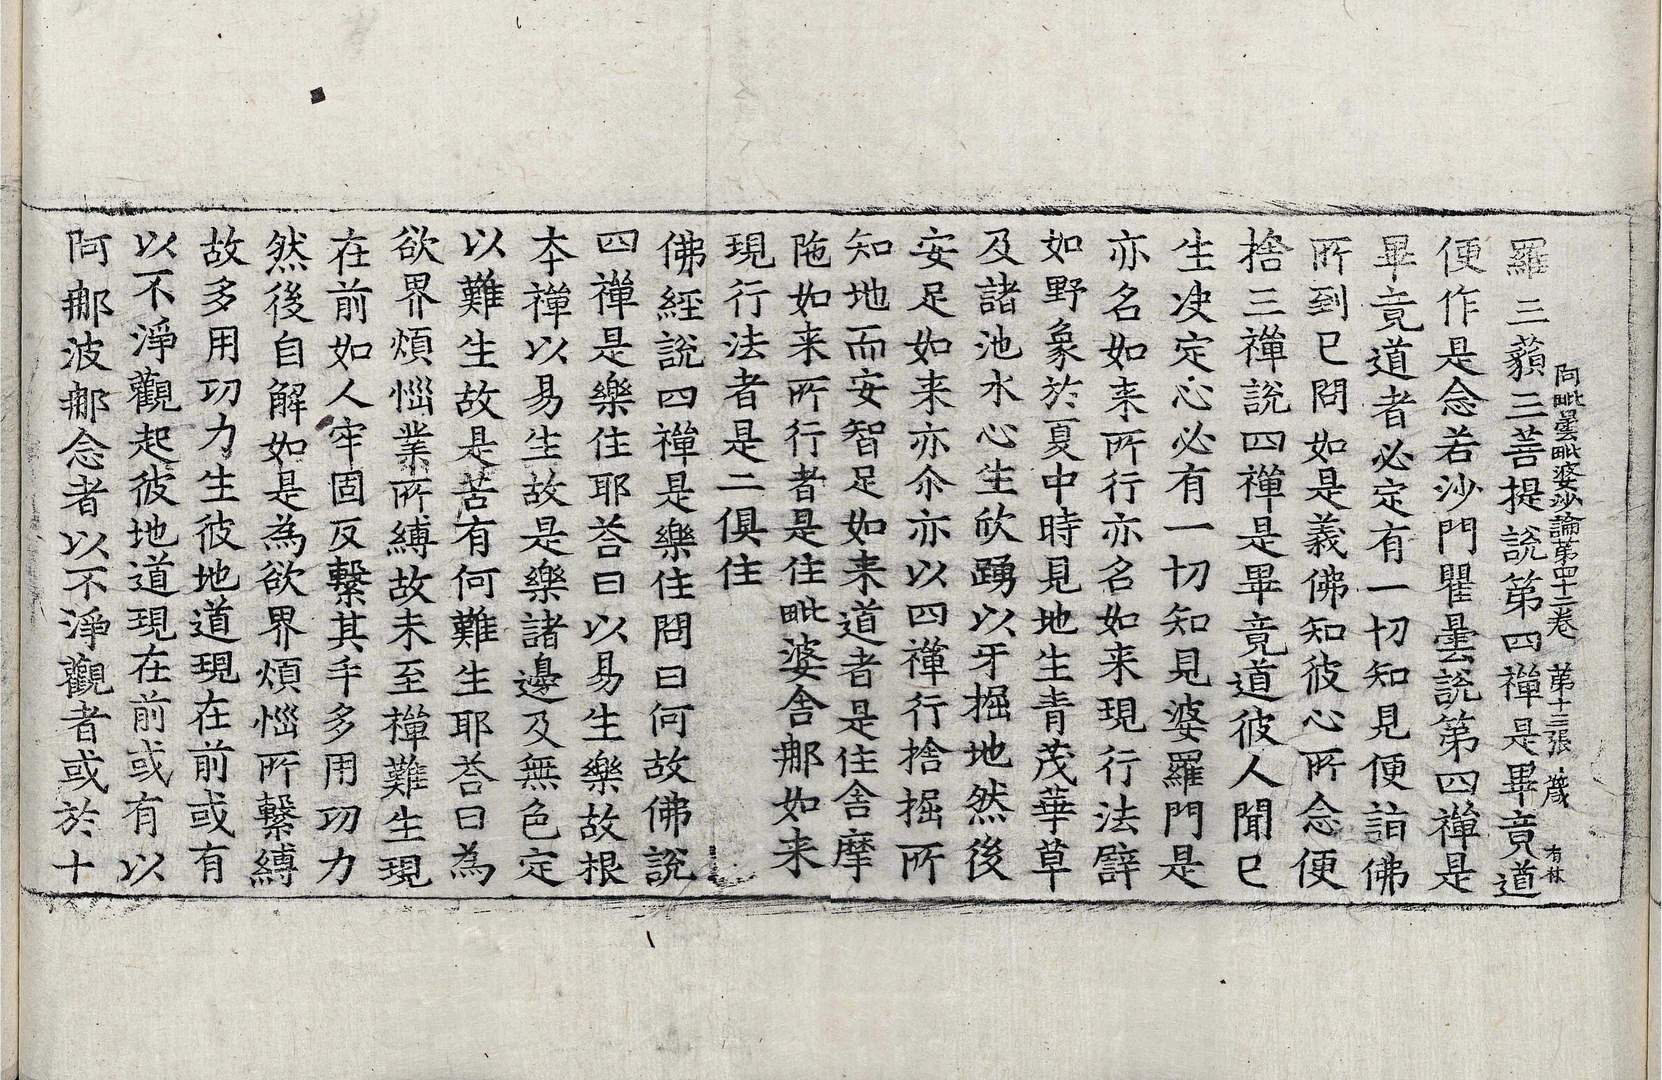 阿毗曇毗婆沙論第四十二卷 第十三張 歲 有林
羅三藐三菩提說第四禪是畢竟道
便作是念若沙門瞿曇說第四禪是
畢竟道者必定有一切知見便詣佛
所到已問如是義佛知彼心所念便
捨三禪說四禪是畢竟道彼人聞已
生决定心必有一切知見婆羅門是
亦名如来所行亦名如来現行法譬
如野象於夏中時見地生青茂華草
及諸池水心生欣踴以牙掘地然後
安足如来亦尒亦以四禪行捨掘所
知地而安智足如来道者是住舍摩
陁如来所行者是住毗婆舍那如来
現行法者是二俱住
佛經說四禪是樂住問曰何故佛說
四禪是樂住耶荅曰以易生樂故根
本禪以易生故是樂諸邊及無色定
以難生故是苦有何難生耶荅曰為
欲界煩惱業所縛故未至禪難生現
在前如人牢固反繫其手多用功力
然後自解如是為欲界煩惱所繫縛
故多用功力生彼地道現在前或有
以不淨觀起彼地道現在前或有以
阿那波那念者以不淨觀者或於十